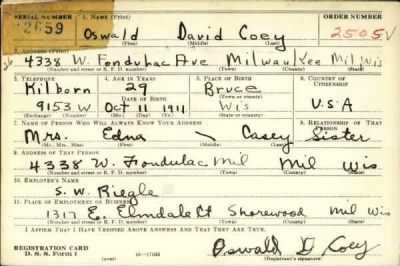 SERIAL NUMBER 1. NAME (Print) ORDER NUMBER
2659 Oswald David Coey 2505 V
(First) (Middle) (Last)
2. ADDRESS (Print)
4338 W. Fonduhac Ave Milwaukee Mil Wis
(Number and street or R. F. D. number) (Town) (County) (State)
3. TELEPHONE 4. AGE IN YEARS 5. PLACE OF BIRTH 6. COUNTRY OF CITIZENSHIP
Kilborn 29 Bruce
DATE OF BIRTH (Town or county)
9153 W Oct 11 1911 Wis U.S.A
(Exchange) (Number) (Mo.) (Day) (Yr.) (State or country)
7. NAME OF PERSON WHO WILL ALWAYS KNOW YOUR ADDRESS 8. RELATIONSHIP OF THAT PERSON
Mrs. Edna Casey Sister
(Mr., Mrs., Miss) (First) (Middle) (Last)
9. ADDRESS OF THAT PERSON
4338 W. Fondulac Mil Mil Wis
(Number and street or R. F. D. number) (Town) (County) (State)
10. EMPLOYER'S NAME
S. W. Riegle
11. PLACE OF EMPLOYMENT OR BUSINESS
1317 E. Elmdale Ct Shorewood Mil Wis
(Number and street or R. F. D. number) (Town) (County) (State)
I AFFIRM THAT I HAVE VERIFIED ABOVE ANSWERS AND THAT THEY ARE TRUE.
REGISTRATION CARD
D. S. S. Form 1 Oswald D Coey
(Registrant's signature)